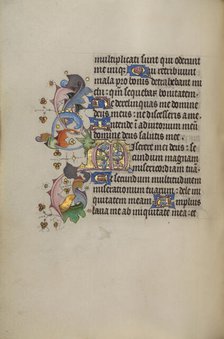 multiplicati sunt qui oderunt
me inique Qui retribuunt
mala pro bonis detrahebant mi
chi: qm̄ sequebar bonitatem.
Ne derelinquas me domine
deus meus: ne discesseris a me.
Intende in adiutorium meū
domine deus salutis mee:
Miserere mei deus: se
cundum magnam
misericordiam tuam.
Et secundum multitudinem
miserationum tuarum: dele ini
quitatem meam Amplius
laua me ab iniquitate mea: et